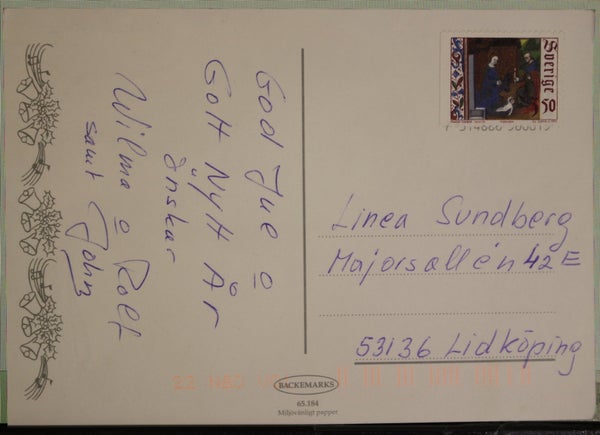 God Jue o
Gott Nytt År
önskar
Wilma o Rolf
samt John
Sverige
3.50
Linea Sundberg
Majorsallén 42 E
53136 Lidköping
BACKEMARKS
65.184
Miljövänligt papper